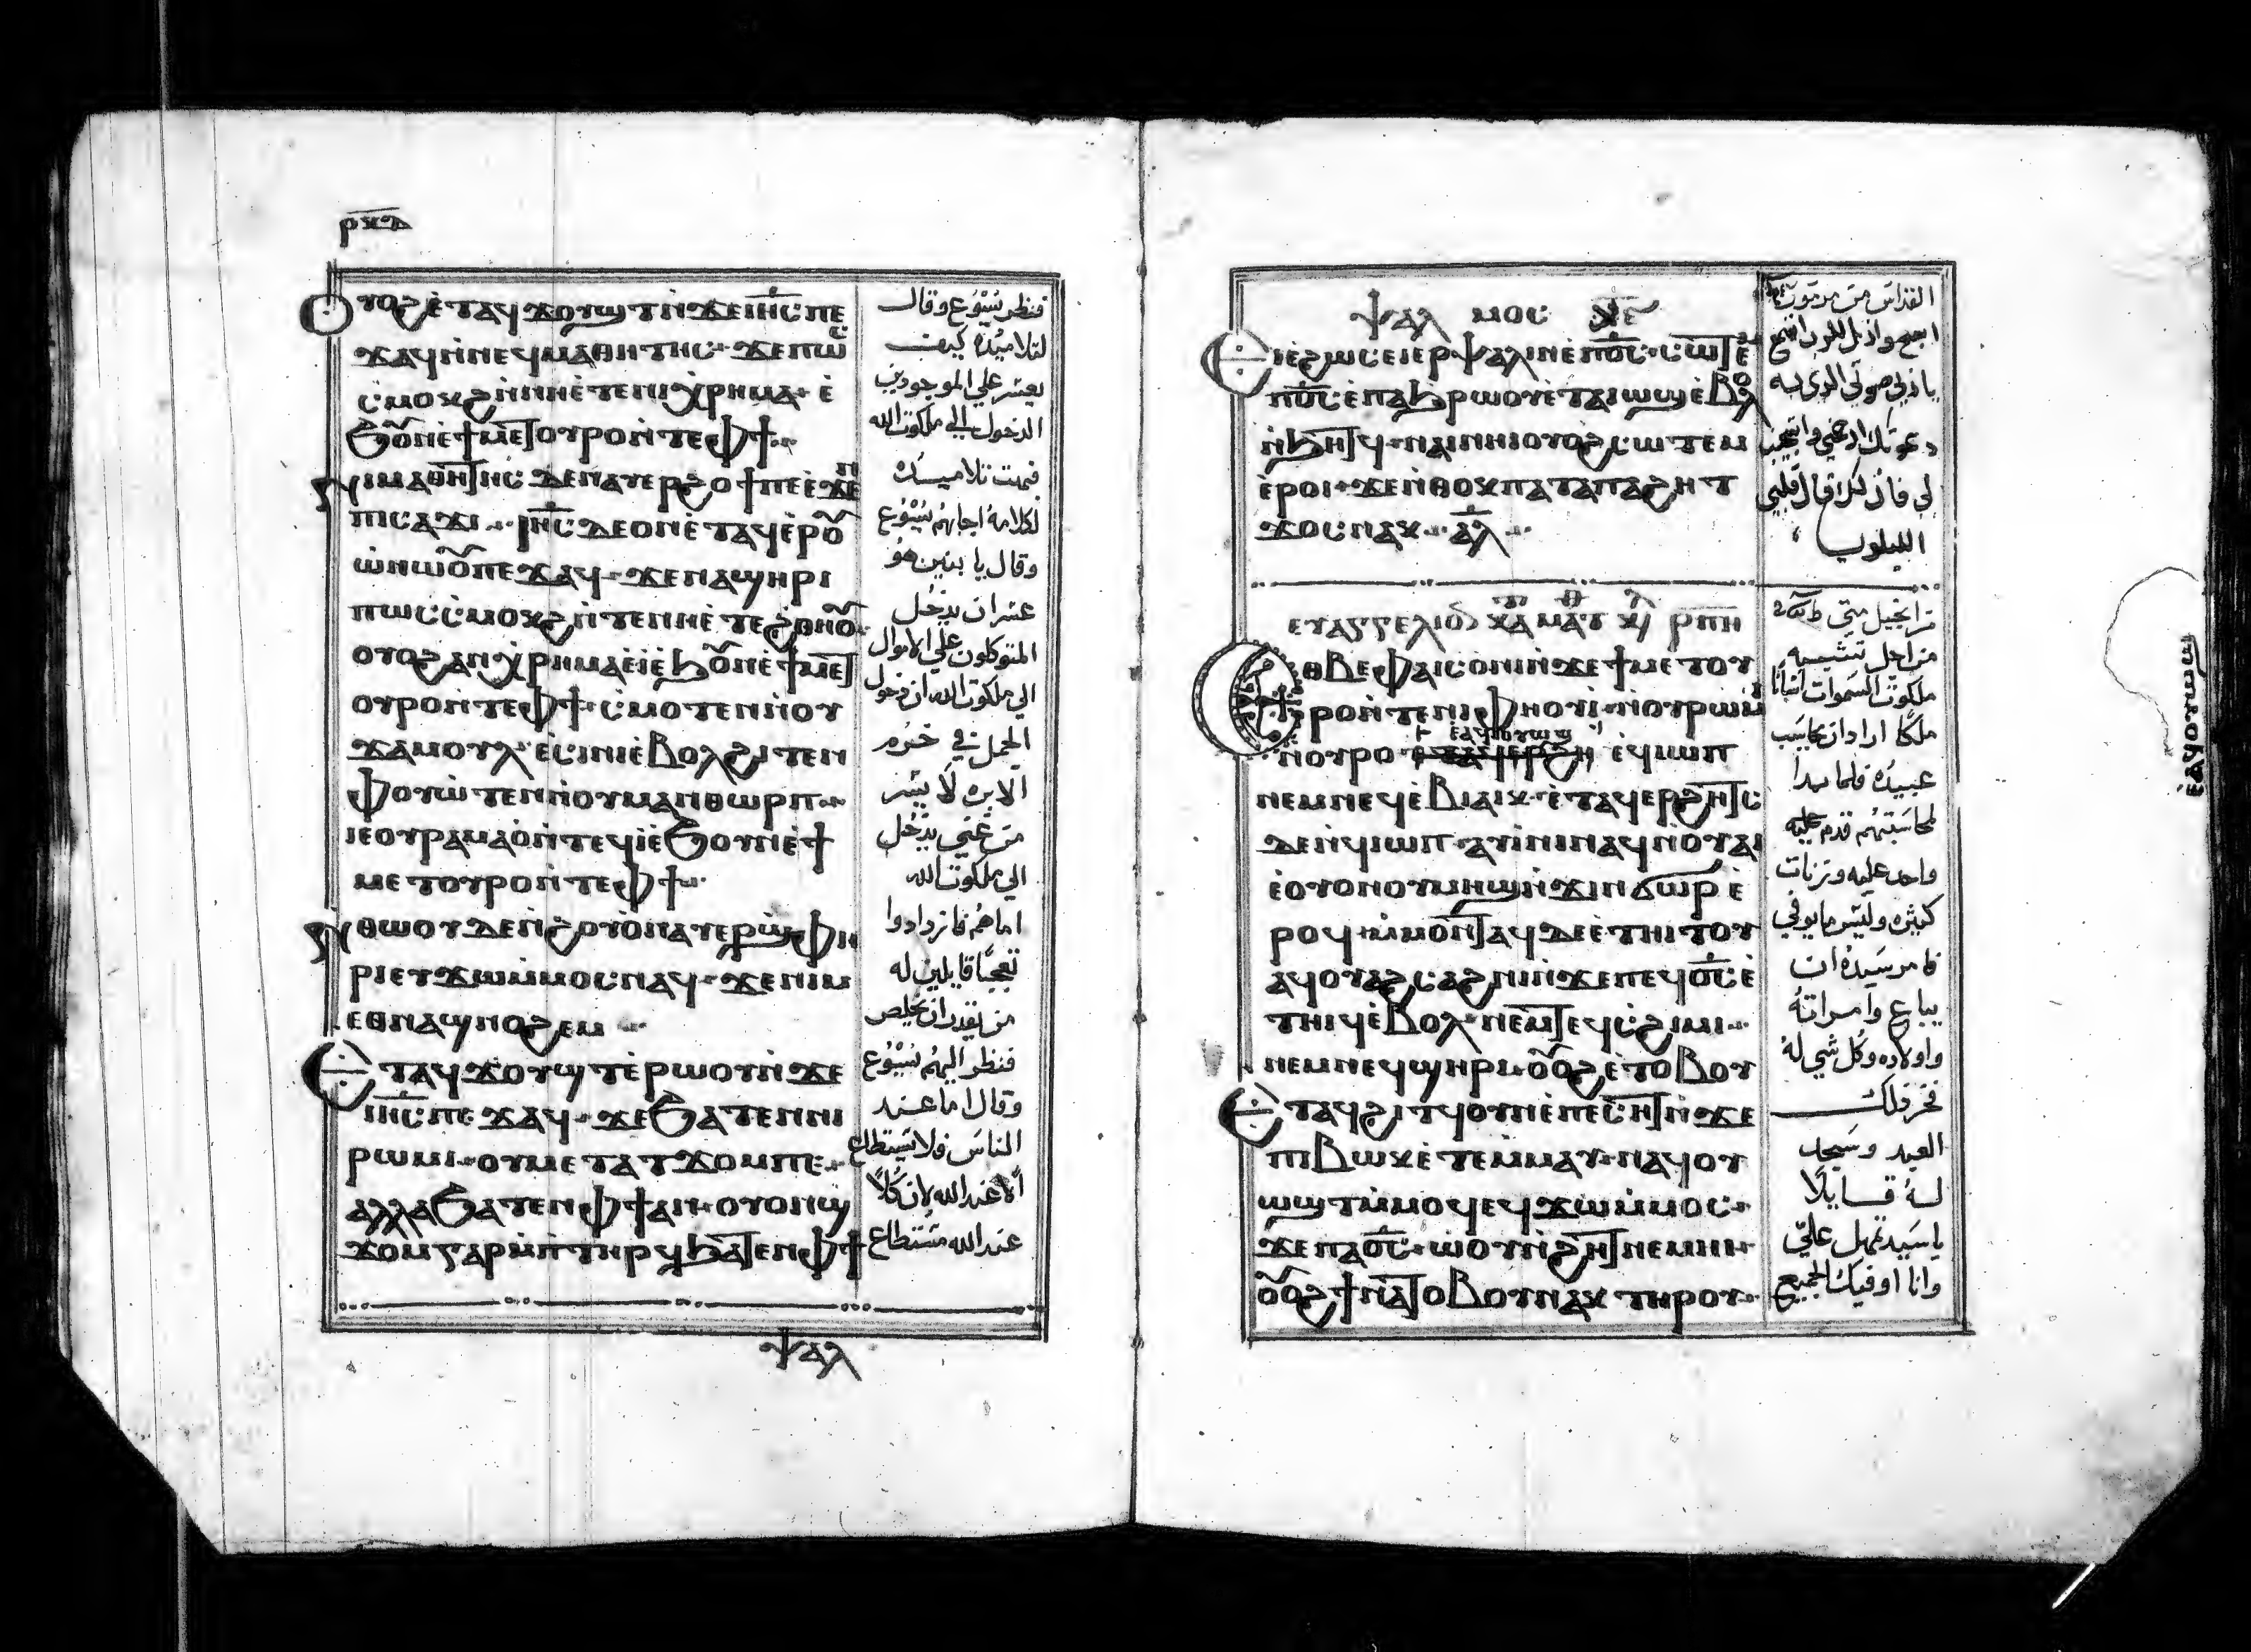 ⲣⲕⲇ
ⲟⲩⲟϩ ⲉ̀ⲧⲁϥϫⲟⲩϣⲧ ⲛ̀ϫⲉ ⲓⲏ̅ⲥ̅ ⲡⲉ
ϫⲁϥ ⲛ̀ⲛⲉϥⲙⲁⲑⲏⲧⲏⲥ · ϫⲉ ⲡⲱⲥ
ⲥ̀ⲙⲟⲕϩ ⲛ̀ⲛⲏⲉ̀ⲧⲉ ⲛⲓⲭⲣⲏⲙⲁ · ⲉ̀
ϧⲟⲩⲛ ⲉ̀ϯⲙⲉⲧⲟⲩⲣⲟ ⲛ̀ⲧⲉ ⲫϯ
ⲛⲓⲙⲁⲑⲏⲧⲏⲥ ⲇⲉ ⲛⲁⲩⲉⲣϩⲟϯ ⲡⲉ ⲉ̀ϫⲉⲛ
ⲡⲓⲥⲁϫⲓ · ⲓⲏ̅ⲥ̅ ⲇⲉ ⲟⲛ ⲉ̀ⲧⲁϥⲉ̀ⲣⲟⲩ
ⲱ̀ ⲛⲱⲟⲩ ⲡⲉϫⲁϥ · ϫⲉ ⲛⲁϣⲏⲣⲓ
ⲡⲱⲥ ⲥ̀ⲙⲟⲕϩ ⲛ̀ⲧⲉ ⲛⲏⲉ̀ⲧⲉ ϩⲑⲏⲟⲩ
ⲟⲩⲟϩ ⲁⲛⲭⲣⲏⲙⲁ ⲉ̀ⲓ̀ ⲉ̀ϧⲟⲩⲛ ⲉ̀ϯⲙⲉⲧ
ⲟⲩⲣⲟ ⲛ̀ⲧⲉ ⲫϯ · ⲥ̀ⲙⲟⲧⲉⲛ ⲛ̀ⲟⲩ
ϫⲁⲙⲟⲩⲗ ⲉ̀ⲥⲓⲛⲓ ⲉ̀ⲃⲟⲗ ϩⲓⲧⲉⲛ
ⲫⲟⲩⲱ̀ⲧⲉⲛ ⲛ̀ⲟⲩⲙⲁⲛⲑⲱⲣⲡ
ⲓⲉ ⲟⲩⲣⲁⲙⲁⲟ̀ ⲛ̀ⲧⲉϥⲓ̀ ⲉ̀ϧⲟⲩⲛ ⲉ̀ϯ
ⲙⲉⲧⲟⲩⲣⲟ ⲛ̀ⲧⲉ ⲫϯ
ⲛ̀ⲑⲱⲟⲩ ⲇⲉ ⲛ̀ϩⲟⲩⲟ̀ ⲛⲁⲩⲉⲣϣ̀ⲫⲏ
ⲣⲓ ⲉⲩϫⲱ ⲙ̀ⲙⲟⲥ ⲛⲁϥ · ϫⲉ ⲛⲓⲙ
ⲉⲑⲛⲁϣⲛⲟϩⲉⲙ
ⲉ̀ⲧⲁϥϫⲟⲩϣⲧ ⲉ̀ⲣⲱⲟⲩ ⲛ̀ϫⲉ
ⲓⲏ̅ⲥ̅ ⲡⲉϫⲁϥ · ϫⲉ ϧⲁⲧⲉⲛ ⲛⲓ
ⲣⲱⲙⲓ · ⲟⲩⲙⲉⲧⲁⲧϫⲟⲙ ⲡⲉ
ⲁⲗⲗⲁ ϧⲁⲧⲉⲛ ⲫϯ ⲁⲛ · ⲟⲩⲟⲛ ϣ
ϫⲟⲙ ⲅⲁⲣ ⲙ̀ⲡⲧⲏⲣϥ ϧⲁⲧⲉⲛ ⲫϯ
ⲯⲁⲗ
فنظر يَسُوع وقال
لتلاميذه كيف
يعسر علي الموجودين
الدخول الي ملكوت الله
فبهتت تلاميذه
لكلامه اجابهم يَسُوع
وقال يا بنين هو
عسران يدخل
المتوكلون علي الاموال
الي ملكوت الله ان دخول
الجمل في خرم
الابره لايسر
من غني يدخل
الي ملكوت الله
اما هم فازدادوا
تعجبًا قايلين له
من يقدر ان يخلص
فنظر اليهم يَسُوع
وقال اما عند
الناس فلا يستطاع
الا عند الله لان كلاً
عند الله مستطاع
ⲯⲁⲗⲙⲟⲥ
ⲉⲓⲉ̀ϩⲱⲥ ⲉⲓⲉⲣⲯⲁⲗⲓⲛ ⲉ̀ⲡⲟ̅ⲥ̅ · ⲥⲱⲧⲉⲙ
ⲡⲟ̅ⲥ̅ ⲉ̀ⲡⲁϧⲣⲱⲟⲩ ⲉ̀ⲧⲁⲓⲱϣ ⲉ̀ⲃⲟⲗ
ⲛ̀ϧⲏⲧϥ · ⲛⲁⲓ ⲛⲏⲓ ⲟⲩⲟϩ ⲥⲱⲧⲉⲙ
ⲉ̀ⲣⲟⲓ · ϫⲉ ⲛ̀ⲑⲟⲕ ⲡⲉⲧⲁ ⲡⲁϩⲏⲧ
ϫⲟⲥ ⲛⲁⲕ · ⲁⲗ
ⲉⲩⲁⲅⲅⲉⲗⲓⲟⲛ ⲕⲁ ⲙⲁⲧ ⲣⲡⲏ
ⲉⲑⲃⲉ ⲫⲁⲓ ⲥⲟ̀ⲛⲓ ⲛ̀ϫⲉ ϯⲙⲉⲧⲟⲩ
ⲣⲟ ⲛ̀ⲧⲉ ⲛⲓⲫⲏⲟⲩⲓ̀ · ⲛ̀ⲟⲩⲣⲱⲙⲓ
ⲉ̀ⲁϥⲟⲩⲱϣ
ⲛ̀ⲟⲩⲣⲟ ⲉ̀ϥⲓⲱⲡ
ⲛⲉⲙ ⲛⲉϥⲉ̀ⲃⲓⲁⲓⲕ · ⲉ̀ⲧⲁϥⲉⲣϩⲏⲧⲥ
ⲇⲉ ⲛ̀ϥⲓⲱⲡ · ⲁⲩⲓ̀ⲛⲓ ⲛⲁϥ ⲛ̀ⲟⲩⲁⲓ
ⲉ̀ⲟⲩⲟⲛ ⲟⲩⲙⲏϣ ⲛ̀ϫⲓⲛϭⲱⲣ ⲉ̀
ⲣⲟϥ · ⲙ̀ⲙⲟⲛⲧⲁϥ ⲇⲉ ⲉ̀ⲧⲏⲓⲧⲟⲩ
ⲁϥⲟⲩⲁϩⲥⲁϩⲛⲓ ⲛ̀ϫⲉ ⲡⲉϥⲟ̅ⲥ̅ ⲉ̀
ⲧⲏⲓϥ ⲉ̀ⲃⲟⲗ · ⲛⲉⲙ ⲧⲉϥⲥ̀ϩⲓⲙⲓ
ⲛⲉⲙ ⲛⲉϥϣⲏⲣⲓ · ⲟⲩⲟϩ ⲉ̀ⲧⲟⲃⲟⲩ
ⲉ̀ⲧⲁϥϩⲓⲧϥ ⲟⲩⲛ ⲉ̀ⲡⲉⲥⲏⲧ ⲛ̀ϫⲉ
ⲡⲓⲃⲱⲕ ⲉ̀ⲧⲉⲙⲙⲁⲩ · ⲛⲁϥⲟⲩ
ⲱϣⲧ ⲙ̀ⲙⲟϥ ⲉϥϫⲱ ⲙ̀ⲙⲟⲥ
ϫⲉ ⲡⲁⲟ̅ⲥ̅ · ⲱ̀ⲟⲩ ⲛ̀ϩⲏⲧ ⲛⲉⲙⲏⲓ
ⲟⲩⲟϩ ϯⲛⲁⲧⲟⲃⲟⲩ ⲛⲁⲕ ⲧⲏⲣⲟⲩ
القداس من مزمور
اسبح وارتل للرب استمع
يا رب صوتي الذي به
دعوتك ارحمني واستجب
لي فان لك قال قلبي
الليلويا
من انجيل متي
من اجل تشبه
ملكوت السموات انسانًا
ملكًا اراد ان يحاسب
عبيده فلما بدا
لمحاسبتهم قدم عليه
واحد عليه وزنات
كثيره وليس ما يوفي
فامر سيده ان
يباع وامراته
واولاده وكل شي له
فخر ذلك
العبد وسجد
له قايلًا
يا سيد تمهل علي
وانا اوفيك الجميع
ⲉ̀ⲁϥⲟⲩⲱϣ